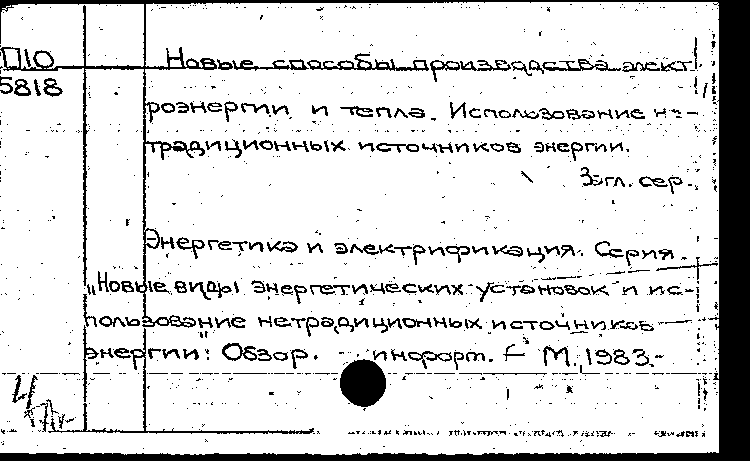 П10 Новые способы производства элект
5818
роэнергии и тепла. Использование не-
традиционных источников энергии.
Загл. сер.
Энергетика и электрификация. Серия
„Новые виды энергетических установок и ис-
пользование нетрадиционных источников
энергии": Обзор. информ. – М., 1983.-